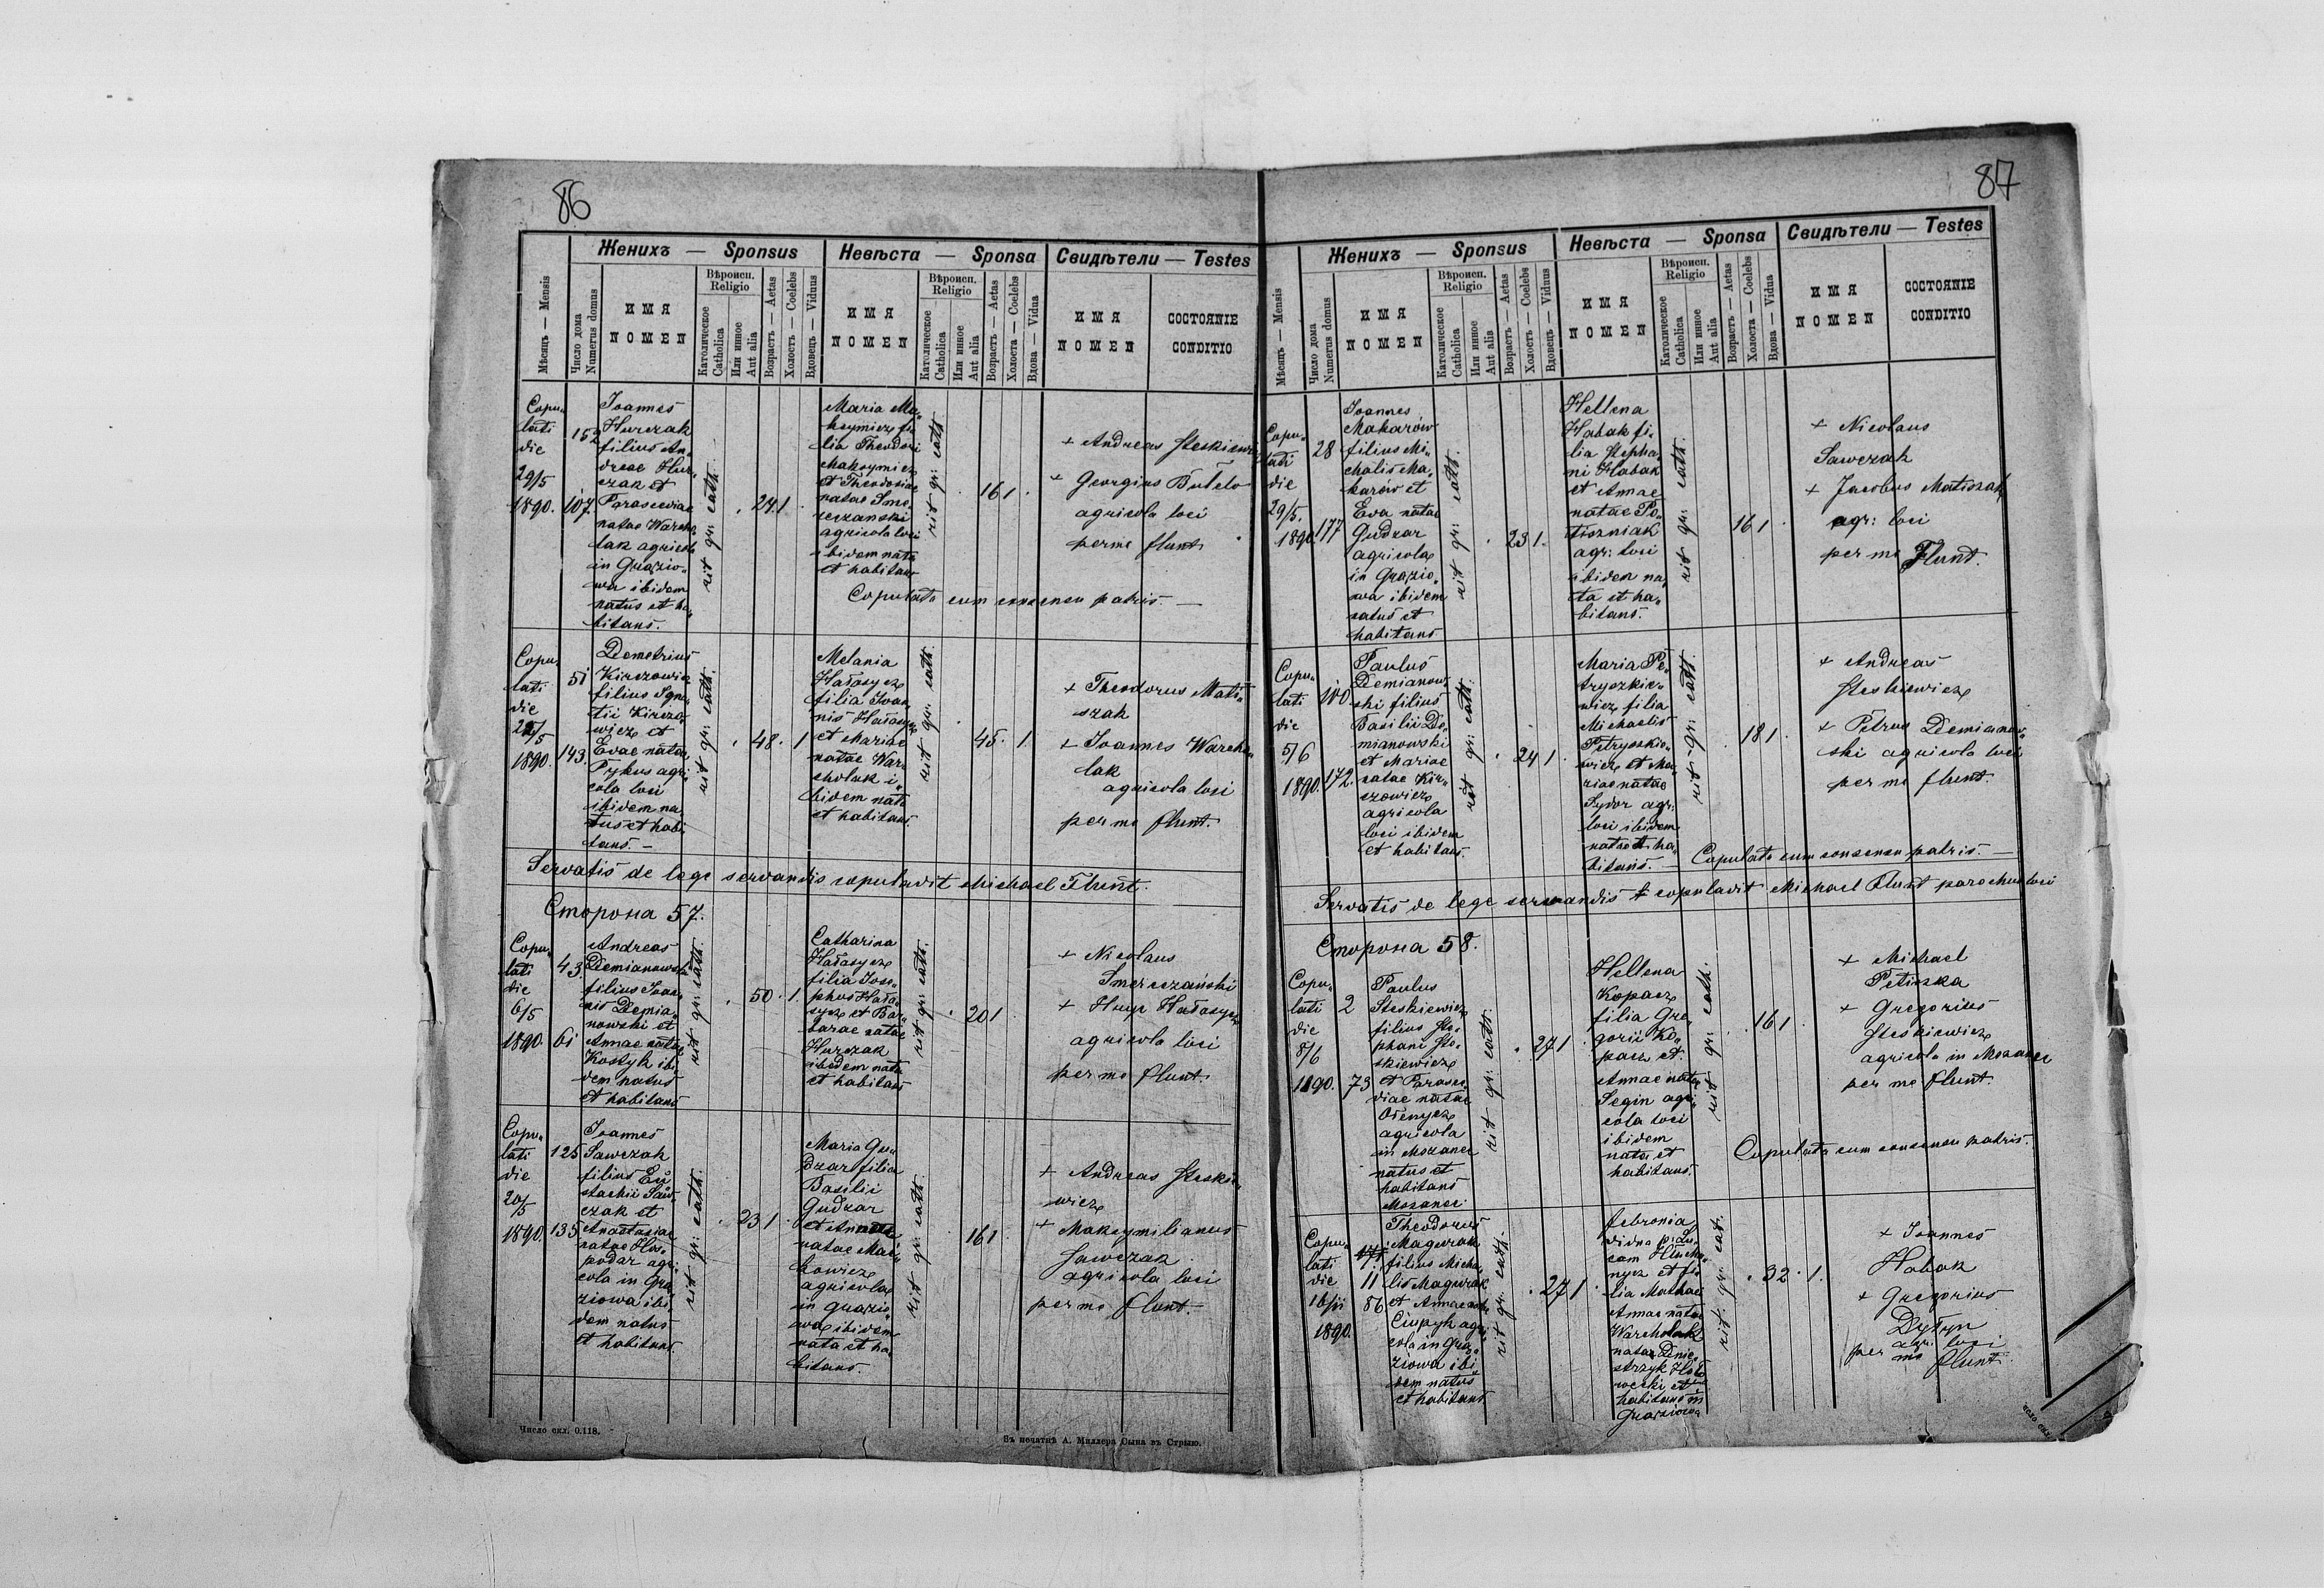 86
Женихъ — Sponsus
Невѣста — Sponsa
Свидѣтели — Testes
Мѣсяцъ — Mensis
Число дома
Numerus domus
ИМЯ
NOMEN
Вѣроисп.
Religio
Католическое
Catholica
Или инное
Aut alia
Возрастъ — Aetas
Холость — Coelebs
Вдовецъ — Viduus
ИМЯ
NOMEN
Вѣроисп.
Religio
Католическое
Catholica
Или инное
Aut alia
Возрастъ — Aetas
Холоста — Coelebs
Вдова — Vidua
ИМЯ
NOMEN
СОСТОЯНІЕ
CONDITIO
Copu„
lati
die
29/5
1890.
152
107.
Joannes
Hurczak
filius An„
dreae Hur„
czak et
Parasceviae
natae Warcho„
lak agricola
in Grazio„
wa ibidem
natus et ha„
bitans.
rit gr: cath.
24 1
Maria Ma„
ksymicz fi„
lia Theodori
Maksymicz
et Theodosiae
natae Sme„
reczanski
agricola loci
ibidem nata
et habitans
rit gr: cath.
16 1
+ Andreas Steskiewicz
+ Georgius Butelo
agricola loci
per me Flunt
Copulata cum consensu patris. —
Copu„
lati
die
1890.
51
143.
Demetrius
Kirczowicz
filius Igna„
tii Kirczo„
wicz et
Evae natae
Pykus agri„
cola loci
ibidem na„
tus et habi„
tans. —
rit gr: cath.
48. 1
Melania
Hałasycz
filia Joan„
nis Hałasycz
et Mariae
natae War„
cholak i„
bidem nata
et habitans.
rit gr: cath.
45. 1.
+ Theodorus Mati„
szak
+ Joannes Warcho„
lak
agricola loci
per me Flunt.
Servatis de lege servandis copulavit Michael Flunt.
Сторона 57.
Copu„
lati
die
6/5
1890.
43.
61
Andreas
Demianowski
filius Joan„
nis Demia„
nowski et
Annae natae
Kostyk ibi„
dem natus
et habitans
rit gr: cath.
50. 1.
Catharina
Hałasycz
filia Jose„
phus Hała„
sycz et Bar„
barae natae
Hurczak
ibidem nata
et habitans
rit gr: cath.
20 1
+ Nicolaus
Smereczański
+ Hałasycz
agricola loci
per me Flunt.
Copu„
lati
die
20/5
1890.
125
135
Joannes
Sawczak
filius Eu„
stachii Saw„
czak et
Anastasiae
natae Hos„
podar agri„
cola in Gra„
ziowa ibi„
dem natus
et habitans.
rit gr: cath.
23 1
Maria Gu„
dzar filia
Basilii
Gudzar
et Annae
natae Mac„
kowicz
agricolae
in Grazio„
wa ibidem
nata et ha„
bitans.
rit gr: cath.
16 1
+ Andreas Steskie„
wicz
+ Maksymilianus
Sawczak
agricola loci
per me Flunt. —
Число скл. 0.118.
Зъ печатнѣ А. Миллера Сына въ Стрыю.
87
Женихъ — Sponsus
Невѣста — Sponsa
Свидѣтели — Testes
Мѣсяцъ — Mensis
Число дома
Numerus domus
ИМЯ
NOMEN
Вѣроисп.
Religio
Католическое
Catholica
Или инное
Aut alia
Возрастъ — Aetas
Холость — Coelebs
Вдовецъ — Viduus
ИМЯ
NOMEN
Вѣроисп.
Religio
Католическое
Catholica
Или инное
Aut alia
Возрастъ — Aetas
Холоста — Coelebs
Вдова — Vidua
ИМЯ
NOMEN
СОСТОЯНІЕ
CONDITIO
Copu„
lati
die
29/5.
1890
28
177
Joannes
Makarów
filius Mi„
chalis Ma„
karów et
Eva natae
Gudzar
agricolae
in Grazio„
wa ibidem
natus et
habitans
rit gr: cath.
23 1.
Hellena
Habak fi„
lia Stepha„
ni Habak
et Annae
natae Po„
tiszniak
agr: loci
ibidem na„
ta et ha„
bitans.
rit gr: cath.
16 1
+ Nicolaus
Sawczak
+ Jacobus Matiszak
agr: loci
per me Flunt.
Copu„
lati
die
5/6
1890.
100
172.
Paulus
Demianow„
ski filius
Basilii De„
mianowski
et Mariae
natae Kir„
czowicz
agricola
loci ibidem
et habitans.
rit gr: cath.
24 1.
Maria Pe„
tryszkie„
wicz filia
Michaelis
Petryszkie„
wicz et Ma„
riae natae
Sydor agr:
loci ibidem
nata et ha„
bitans. —
rit gr: cath.
18 1
+ Andreas
Steskiewicz
+ Petrus Demianow„
ski agricola loci
per me Flunt.
Copulata cum consensu patris. —
Servatis de lege servandis copulavit Michael Flunt parochus loci
Сторона 58.
Copu„
lati
die
8/6
1890.
2
73
Paulus
Steskiewicz
filius Ste„
phani Ste„
skiewicz
et Parasce„
viae natae
Olenycz
agricola
in Mszanec
natus et
habitans
Mszanec
rit gr: cath.
27 1
Hellena
Kopacz
filia Gre„
gorii Ko„
pacz et
Annae natae
Segin agri„
cola loci
ibidem
nata et
habitans.
rit gr: cath.
16 1
+ Michael
Petiszka
+ Gregorius
Steskiewicz
agricola in Mszanec
per me Flunt.
Copulata cum consensu patris.
Copu„
lati
die
16/11
1890.
11
86
Theodorus
Magurak
filius Micha„
lis Magurak
et Annae natae
Ciupyk agri„
cola in Gra„
ziowa ibi„
dem natus
et habitans
rit gr: cath.
27 1
Febronia
vidua p: Lu„
cam
et fi„
lia Mathaei
Annae natae
Warcholak
nata Dnie„
strzyk Hoło„
wecki et
habitans in
Graziowa
rit gr: cath.
32. 1.
+ Joannes
Habak
+ Gregorius
Dytyn
agr: loci
per me Flunt.